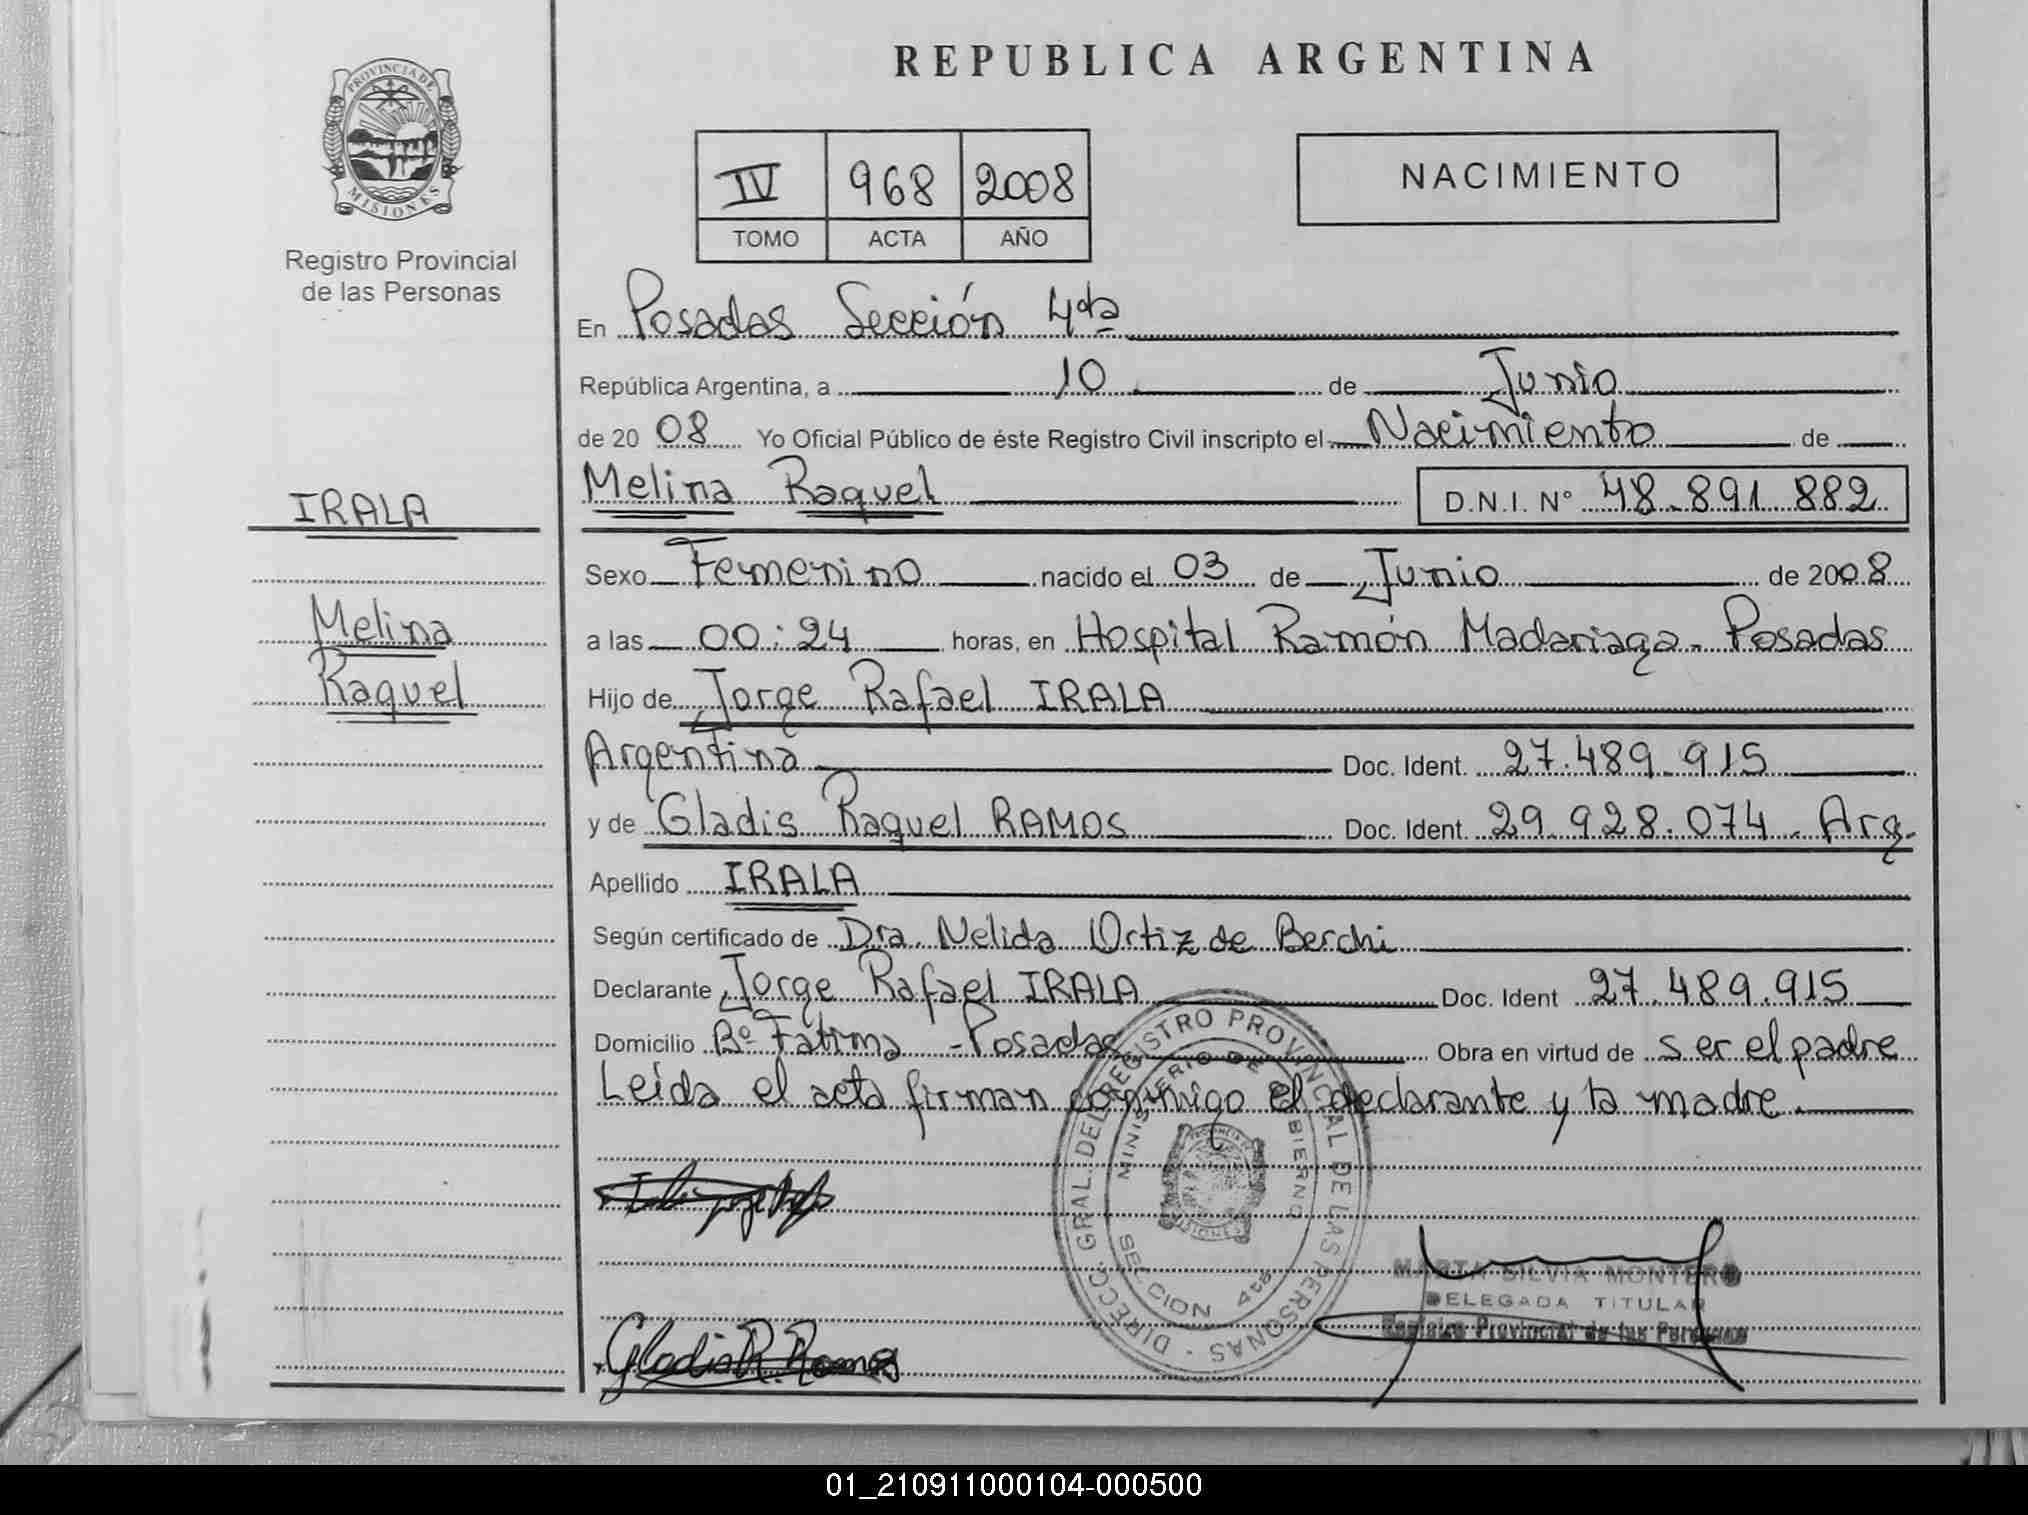 REPUBLICA ARGENTINA
PROVINCIA DE
MISIONES
Registro Provincial
de las Personas
IV 968 2008
TOMO ACTA AÑO
NACIMIENTO
En Posadas Sección 4ta
República Argentina, a 10 de Junio
de 2008 Yo Oficial Público de éste Registro Civil inscripto el Nacimiento de
Melina Raquel D.N.I. Nº 48.891.882
IRALA
Sexo Femenino nacido el 03 de Junio de 2008
Melina
a las 00:24 horas, en Hospital Ramón Madariaga - Posadas
Raquel
Hijo de Jorge Rafael IRALA
Argentina Doc. Ident. 27.489.915
y de Gladis Raquel RAMOS Doc. Ident. 29.928.074 - Arg.
Apellido IRALA
Según certificado de Dra. Nélida Ortiz de Berchi
Declarante Jorge Rafael IRALA Doc. Ident 27.489.915
Domicilio Bº Fátima - Posadas Obra en virtud de ser el padre
Leída el acta firman conmigo el declarante y la madre.
DIRECC. GRAL. DEL REGISTRO PROVINCIAL DE LAS PERSONAS -
MINISTERIO DE GOBIERNO
SECCION 4ta
MISIONES
MARTA SILVIA MONTERO
DELEGADA TITULAR
Registro Provincial de las Personas
Gladis R. Ramos
01_210911000104-000500